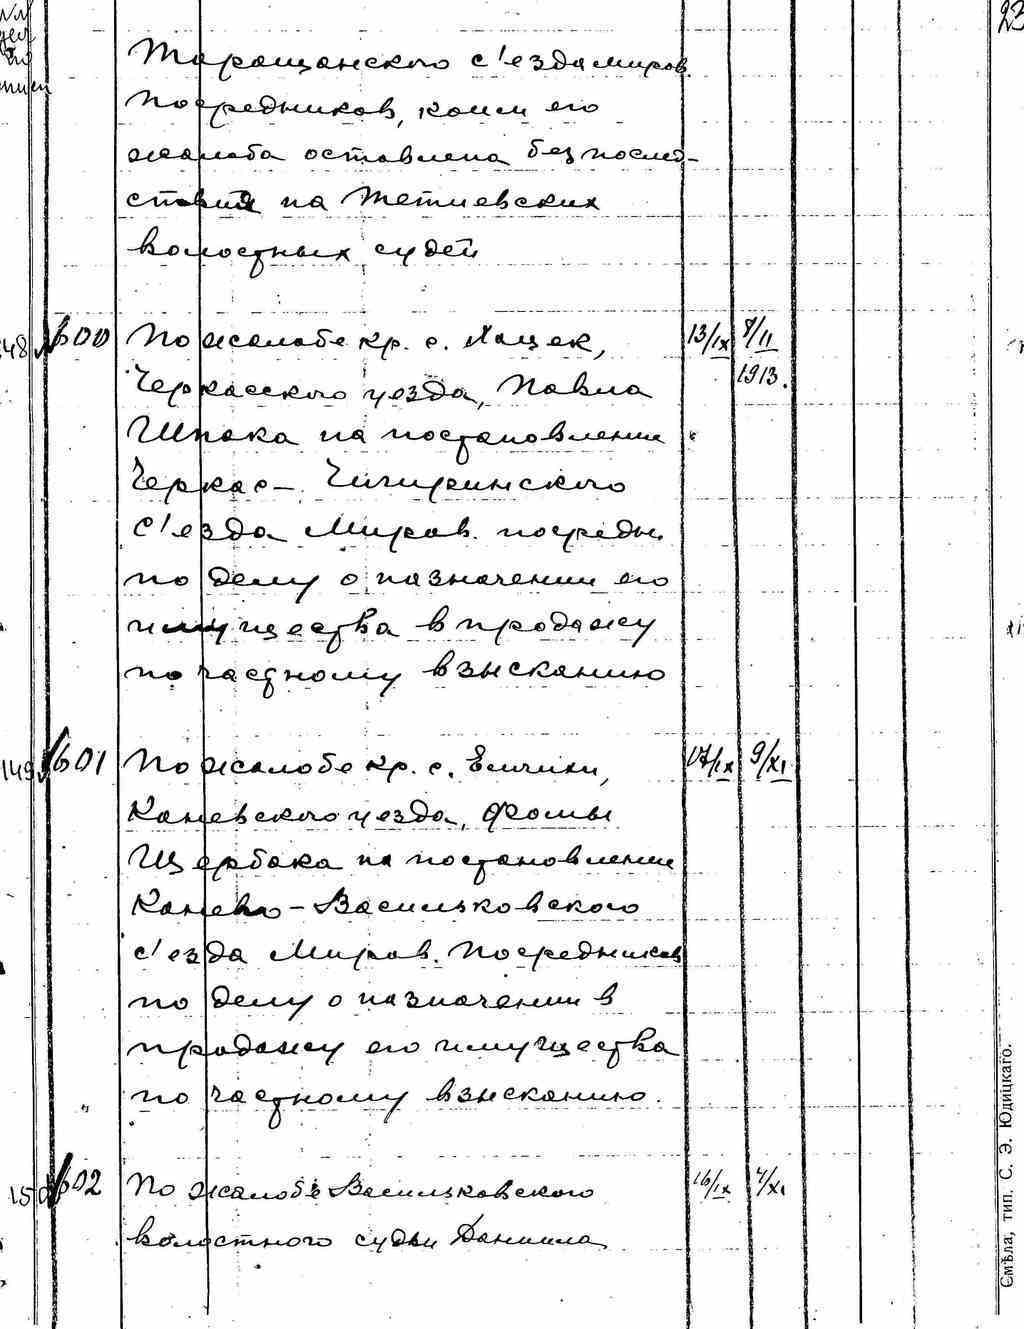 23
Таращанского с'езда миров.
посредников, коим его
жалоба оставлена без послед-
ствий на Тетиевских
волостных судей
148 600 По жалобе кр. с. Хацек, 13/IX 8/II
Черкасского уезда, Павла 1913.
Шпака на постановление
Черкас-Чигиринского
с'езда Миров. посредн
по делу о назначении его
имущества в продажу
по частному взысканию
149 601 По жалобе кр. с. 17/IX 9/XI
Каневского уезда, Фомы
Щербака на постановление
Канево-Васильковского
с'езда Миров. Посредников
по делу о назначении в
продажу его имущества
по частному взысканию.
150 602 По жалобе Васильковского 16/IX 4/XI
волостного судьи Даниила
Смѣла, тип. С. Э. Юдицкаго.